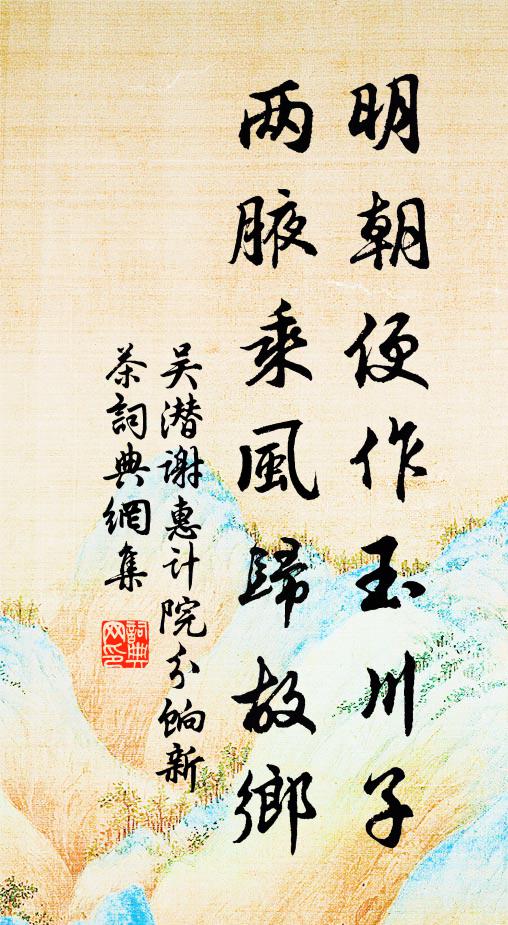 明朝便作玉川子
两腋乘風歸故鄉
吴潜谢惠计院分餉新
茶詞典網集
詞典网印